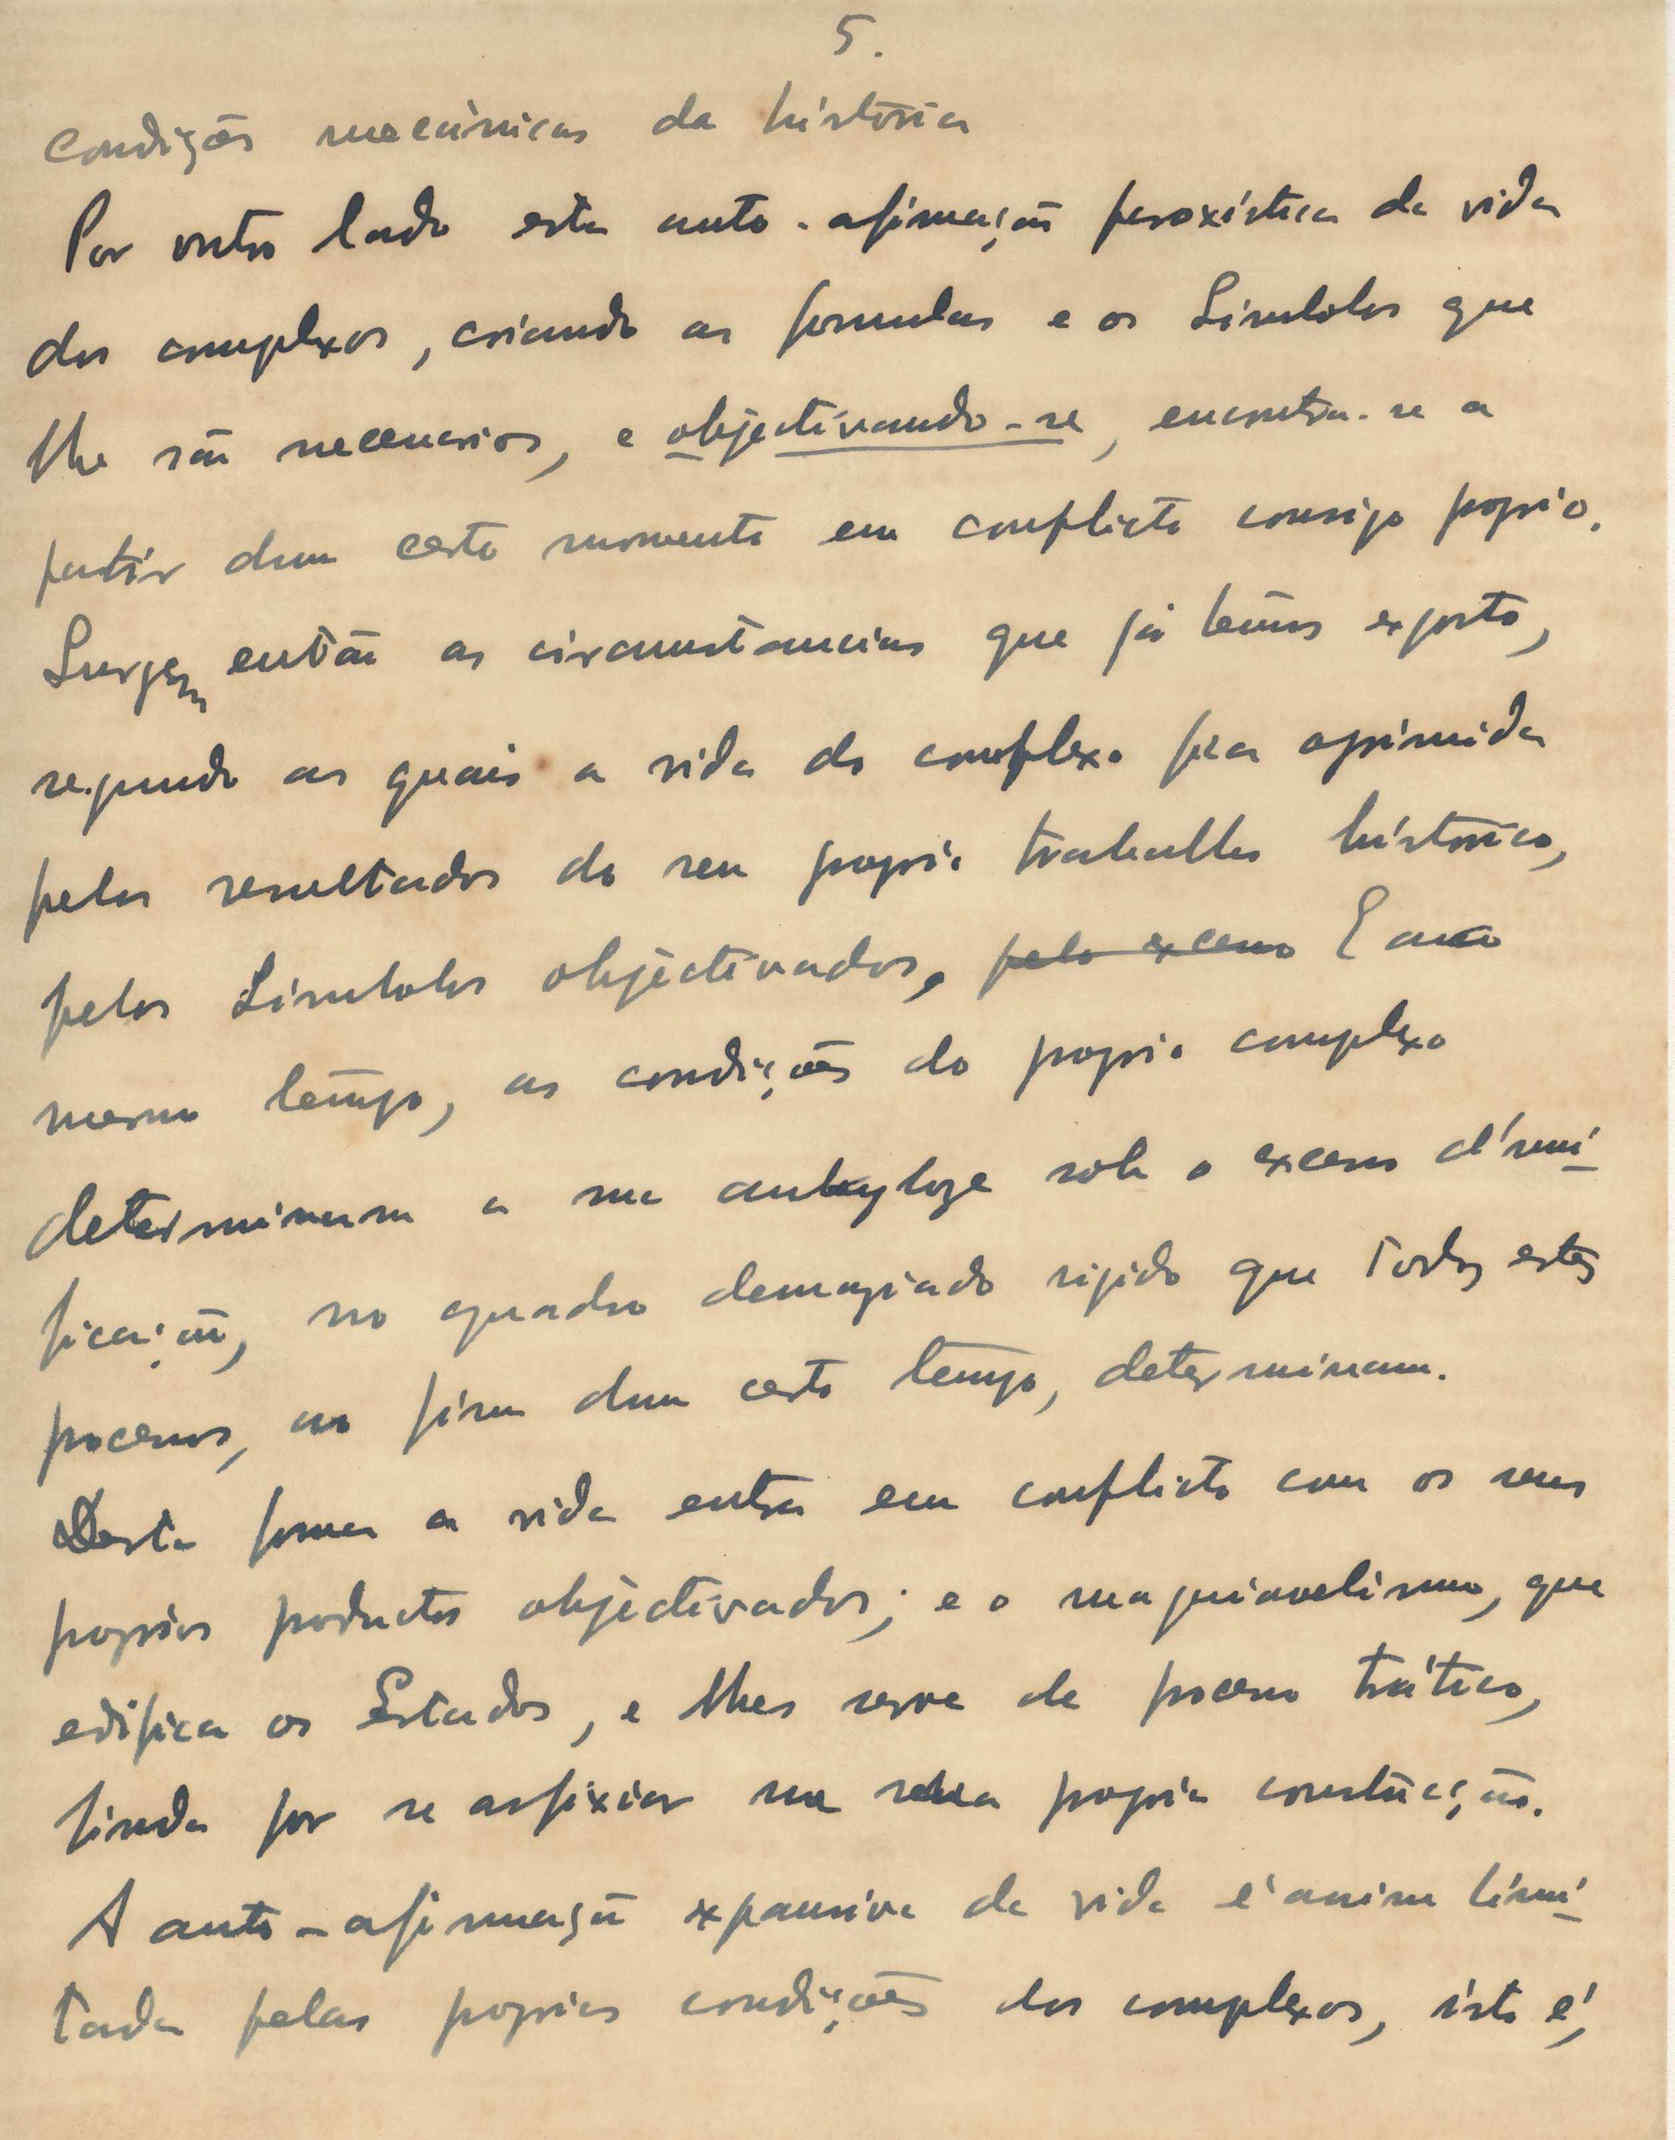 5.
condições mecânicas da história
Por outro lado esta auto-afirmação paroxística da vida
dos complexos, criando as formulas e os Símbolos que
lhe são necessarios, e objectivando-se, encontra-se a
partir dum certo momento em conflicto consigo proprio.
Surgem então as circumstancias que já temos exposto,
segundo as quais a vida do complexo fica oprimida
pelos resultados do seu proprio trabalho histórico,
pelos Símbolos objectivados, pelo excesso E ao
mesmo tempo, as condições do proprio complexo
determinam a sua ankyloze sob o excesso d'uni-
ficação, no quadro demaziado rigido que todos estes
processos, ao fim dum certo tempo, determinam.
Desta forma a vida entra em conflicto com os seus
proprios productos objectivados; e o maquiavelismo, que
edifica os Estados, e lhes serve de processo tático,
finda por se asfixiar na sua propria construcção.
A auto-afirmação expansiva da vida é assim limi-
tada pelas proprias condições dos complexos, isto é,